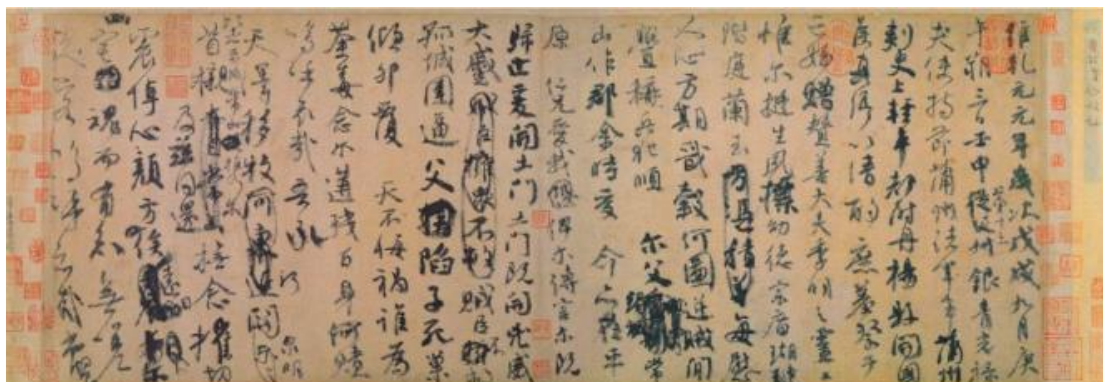 維乾元元年歲次戊戌九月庚
午朔三日壬申第十三叔從父銀青光祿
夫使持節蒲州諸軍事蒲州
刺史上輕車都尉丹楊縣開國
侯真卿以清酌庶羞祭于
亡姪贈贊善大夫季明之靈曰
惟爾挺生夙標幼德宗廟瑚璉
階庭蘭玉方憑積善每慰
人心方期戩穀何圖逆賊間
釁稱兵犯順爾父竭誠常
山作郡余時受命亦在平
原仁兄愛我俾爾傳言爾既
歸止爰開土門土門既開凶威
大蹙賊臣擁眾不救
孤城圍逼父陷子死巢
傾卵覆天不悔禍誰為
荼毒念爾遘殘百身何贖
嗚呼哀哉吾承
天澤移牧河關泉明
首櫬及茲同還撫念摧切
震悼心顏方俟遠日
宅魂而有知無嗟
久客嗚呼哀哉尚饗